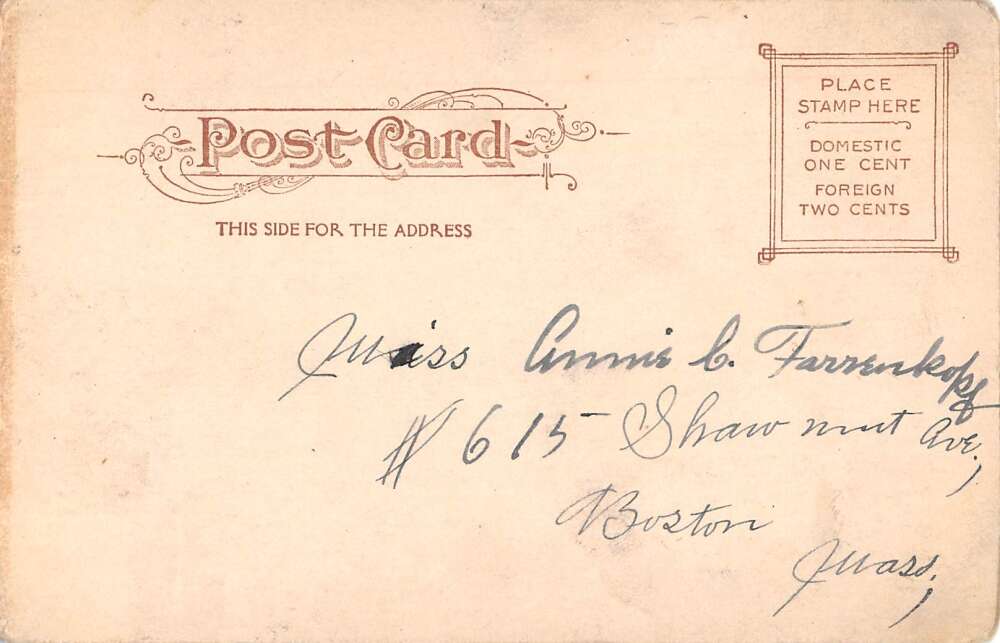 Post Card
THIS SIDE FOR THE ADDRESS
PLACE
STAMP HERE
DOMESTIC
ONE CENT
FOREIGN
TWO CENTS
Miss Annie C. Farrenkopf
# 615 Shawmut Ave,
Boston
Mass,